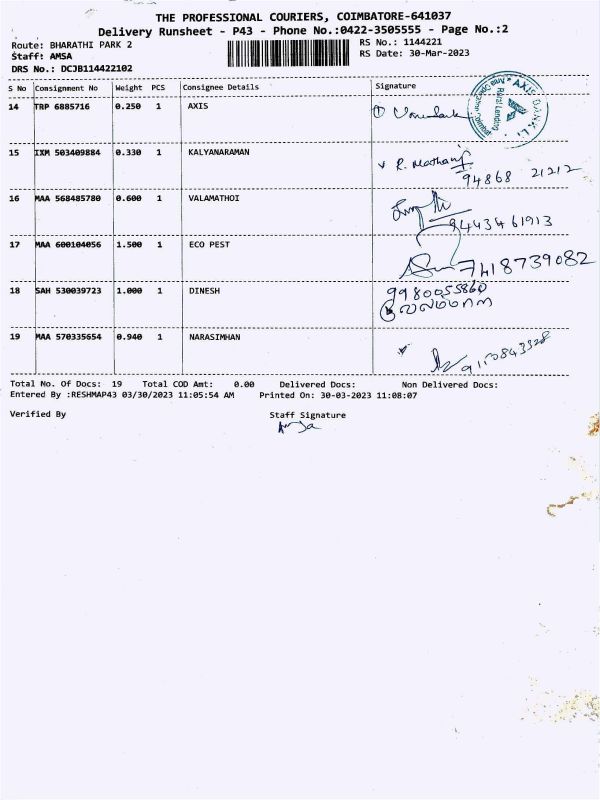 THE PROFESSIONAL COURIERS, COIMBATORE-641037
Delivery Runsheet - P43 - Phone No.:0422-3505555 - Page No.:2
Route: BHARATHI PARK 2
RS No.: 1144221
Staff: AMSA
RS Date: 30-Mar-2023
DRS No.: DCJB114422102
S No Consignment No Weight PCS Consignee Details Signature
14 TRP 6885716 0.250 1 AXIS
AXIS BANK LT
Rural Lending
15 IXM 503409884 0.330 1 KALYANARAMAN
94868 21212
16 MAA 568485780 0.600 1 VALAMATHOI
9443461913
17 MAA 600104056 1.500 1 ECO PEST
7418739082
18 SAH 530039723 1.000 1 DINESH
9980055860
19 MAA 570335654 0.940 1 NARASIMHAN
Total No. Of Docs: 19 Total COD Amt: 0.00 Delivered Docs: Non Delivered Docs:
Entered By :RESHMAP43 03/30/2023 11:05:54 AM Printed On: 30-03-2023 11:08:07
Verified By Staff Signature